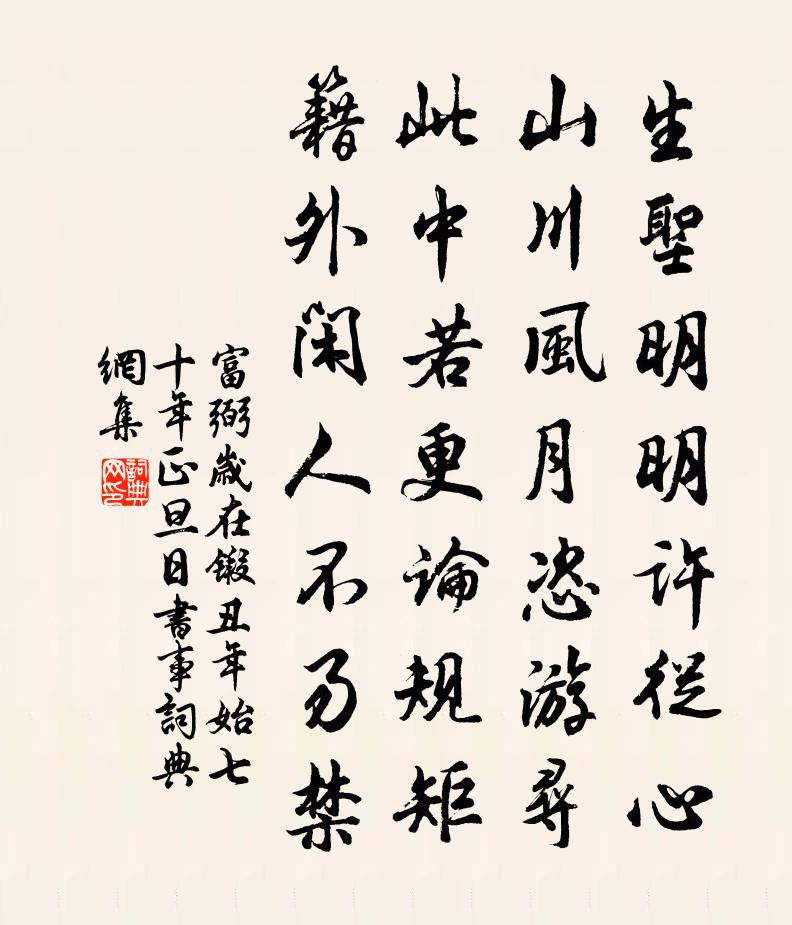 生聖明明許從心
山川風月恣游尋
此中若更論規矩
籍外閑人不易禁
富弼歲在鍛丑年始七
十年正旦日書事詞典
網集
詞典
网印